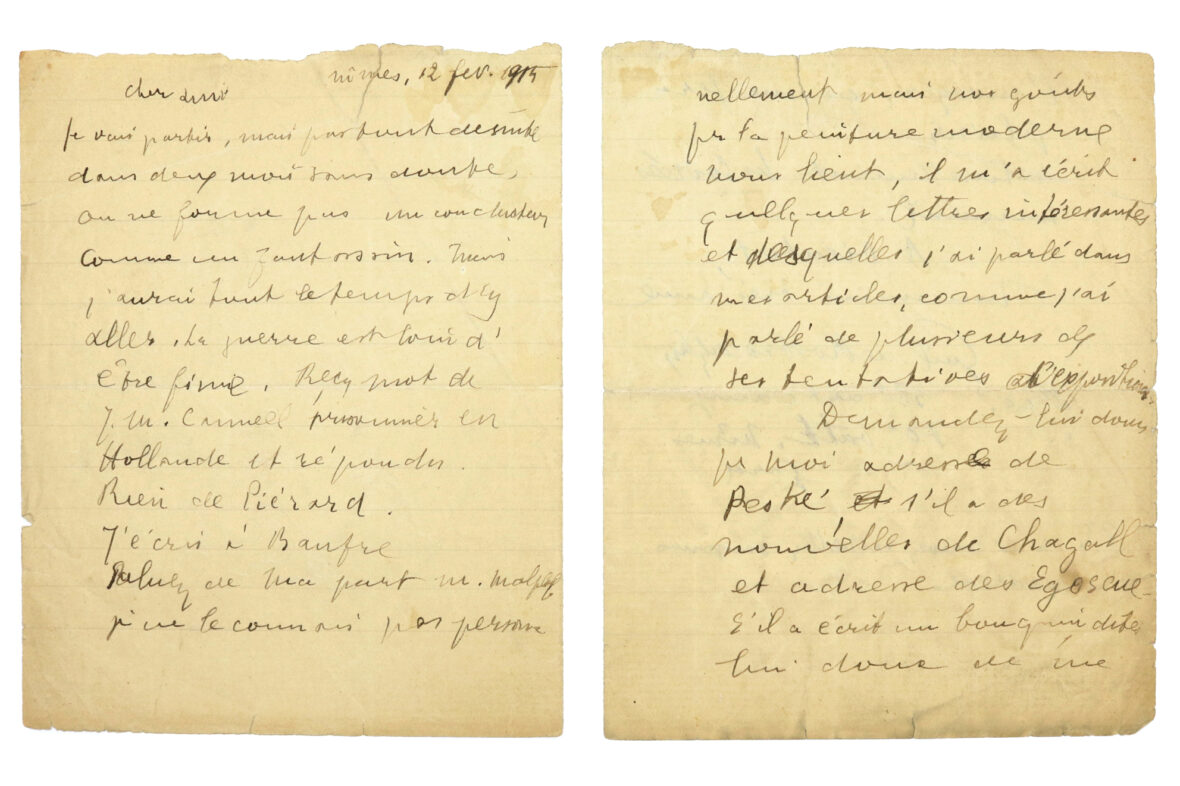 nîmes, 12 fev. 1915
cher ami
Je vais partir, mais pas tout de suite
dans deux mois sans doute,
on ne forme pas un conducteur
comme un fantassin. Mais
j'aurai tout le temps d'y
aller. La guerre est loin d'
être finie. Reçu mot de
J. M. prisonnier en
Hollande et répondu.
Rien de Piérard.
J'écris à
Saluez de ma part M.
je ne le connais pas person
nellement mais nos goûts
pr la peinture moderne
nous lient, il m'a écrit
quelques lettres intéressantes
et desquelles j'ai parlé dans
mes articles, comme j'ai
parlé de plusieurs de
ses tentatives d'exposition.
Demandez-lui donc
pr moi adresse de
Peské s'il a des
nouvelles de Chagall
et adresse des Egoscue.
S'il a écrit un bouquin dites
lui donc de me